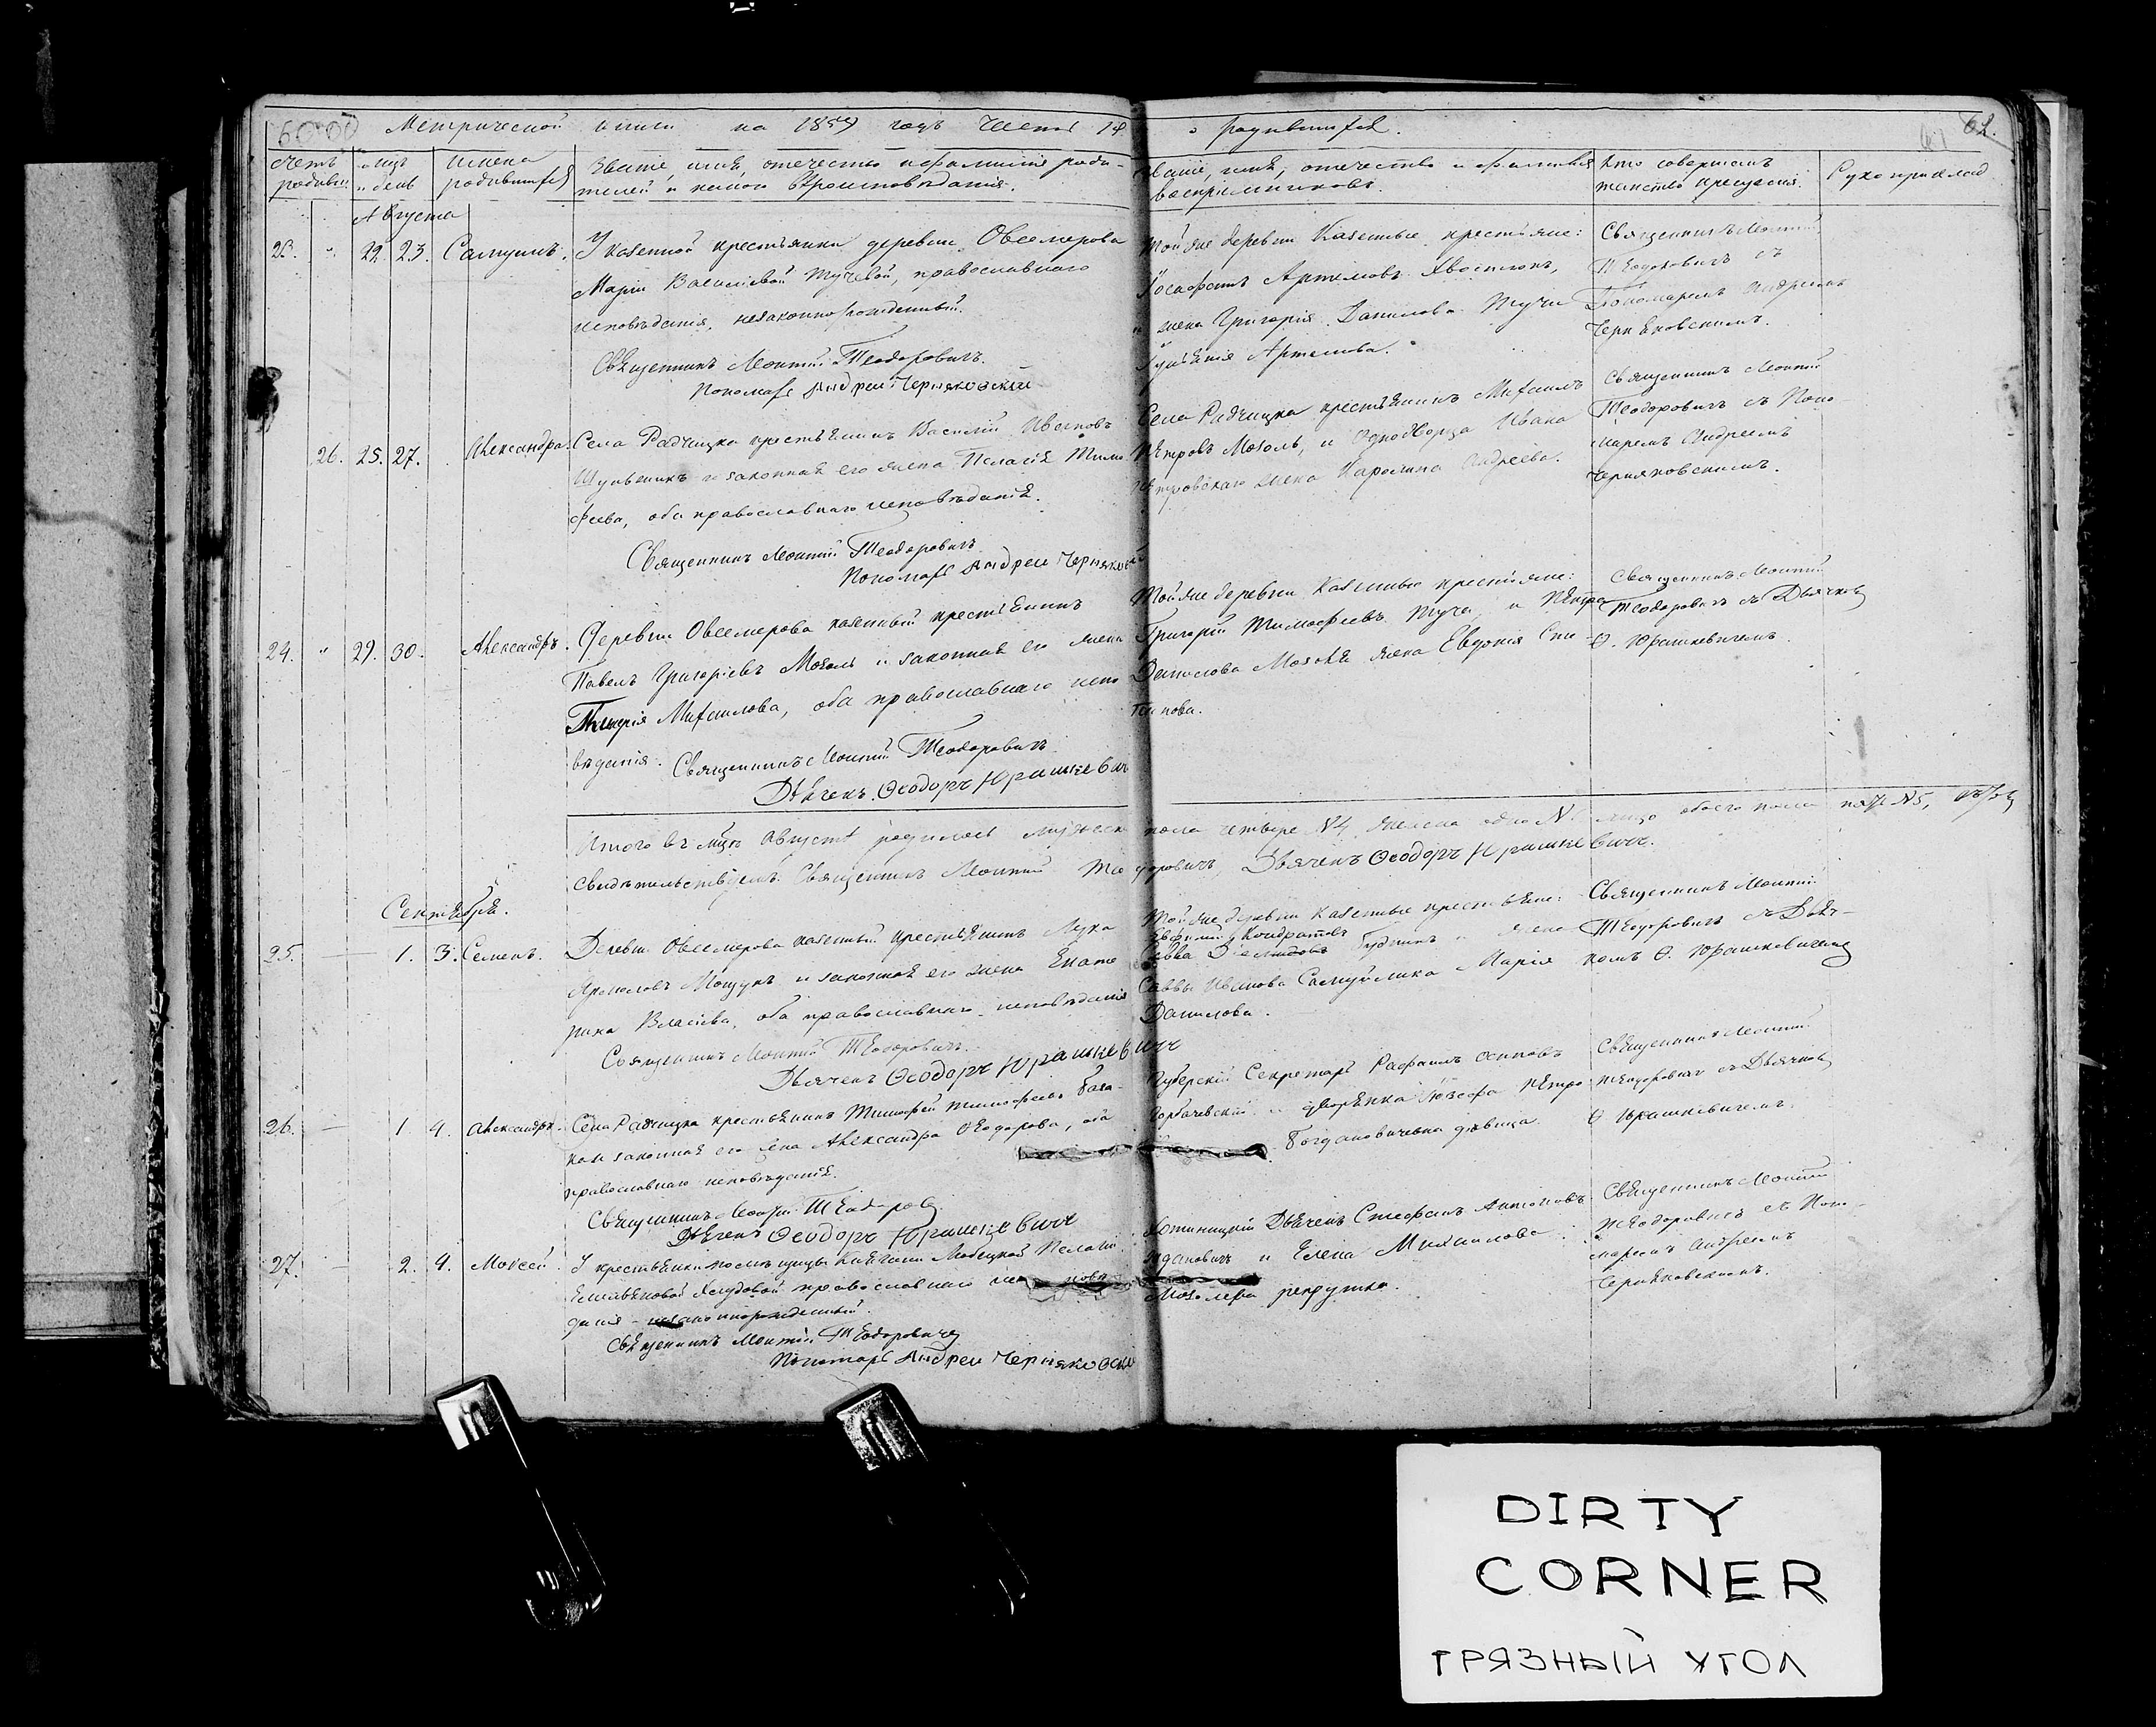 Метрической книги на 1859 годъ Часть 1я о родившихся.
62.
Счетъ родивш.
мцъ и день
Имена родившихся
Званіе, имя, отечество и фамилія роди-
телей и какого вѣроисповѣданія.
Званіе, имя, отечество и фамилія
воспріемниковъ.
Кто совершалъ
таинство крещенія.
Рукоприклад
Августа
23. " 22. 23. Самуилъ.
У казенной крестьянки деревни Овсемерова
Маріи Васильевой Тучевой, православнаго
исповѣданія, незаконнорожденный.
Священникъ Леонтій Теодоровичъ.
Пономарь Андрей Черняковскій
Той же деревни Казенные крестьяне:
Іосафатъ Артемовъ
и жена Григорія Данилова Тучи
Артемова.
Священникъ Леонтій
Теодоровичъ съ
Пономаремъ Андреемъ
Черняковскимъ.
26. 25. 27. Александра.
Села Радчицка крестьянинъ Василій Ивановъ
и законная его жена Пелагія Тимо
феева, оба православнаго исповѣданія.
Священникъ Леонтій Теодоровичъ
Пономарь Андрей Черняковскій
Села Радчицка крестьянинъ Михаилъ
Петровъ Мозоль, и Однодворца Ивана
жена Каролина Андреева.
Священникъ Леонтій
Теодоровичъ съ Поно-
маремъ Андреемъ
Черняковскимъ.
24. " 29. 30. Александръ.
Деревни Овсемерова казенный крестьянинъ
Павелъ Григорьевъ Мозоль и законная его жена
Михаилова, оба православнаго испо
вѣданія. Священникъ Леонтій Теодоровичъ
Дьячекъ Ѳеодоръ Юрашкевичъ
Той же деревни Казенные крестьяне:
Григорій Тимофеевъ Туча, и Петра
Данилова Мозоля жена Евдокія Сте-
панова.
Священникъ Леонтій
Теодоровичъ съ Дьячкомъ
Ѳ. Юрашкевичемъ.
Итого въ мцѣ Августѣ родилось мужеска пола четыре №4, женска одно №1 обоего пола пять №5,
свидѣтельствуемъ. Священникъ Леонтій Теодоровичъ, Дьячекъ Ѳеодоръ Юрашкевичъ.
Сентября.
25. 1. 3. Семенъ.
Деревни Овсемерова казенный крестьянинъ Лука
и законная его жена Екате
рина Власіева, оба православнаго исповѣданія
Священникъ Леонтій Теодоровичъ.
Дьячекъ Ѳеодоръ Юрашкевичъ
Той же деревни Казенные крестьяне:
Кондратовъ
и жена
Саввы Иванова Самуйлика Марія
Данилова.
Священникъ Леонтій
Теодоровичъ съ Дьяч-
комъ Ѳ. Юрашкевичемъ
26. 1. 4. Александръ.
Села Радчицка крестьянинъ Тимофей Тимофеевъ
законная его жена Александра Ѳеодорова, оба
православнаго исповѣданія.
Священникъ Леонтій Теодоров.
Дьячекъ Ѳеодоръ Юрашкевичъ
Губерскій Секретарь Рафаилъ Осиповъ
Горбачевскій и дворянка Іозефа Петро
Богдановичевна дѣвица.
Священникъ Леонтій
Теодоровичъ съ Дьячкомъ
Ѳ. Юрашкевичемъ.
27. 2. 4. Моисей.
У крестьянки помѣщицы Княгини Любецкой Пелагіи
православнаго испо
данія - незаконнорожденный.
Священникъ Леонтій Теодоровичъ
Пономарь Андрей Черняковскій
Дьячекъ Стефанъ Антоновъ
Ждановичъ и Елена Михаилова
рекрутка.
Священникъ Леонтій
Теодоровичъ съ Поно-
маремъ Андреемъ
Черняковскимъ.
DIRTY
CORNER
ГРЯЗНЫЙ УГОЛ